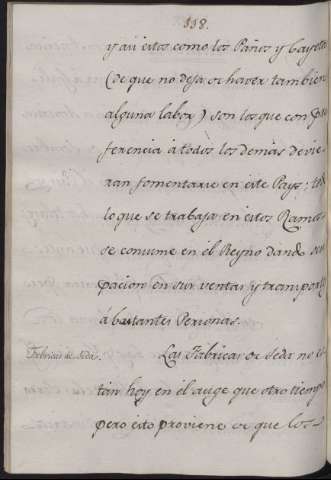 118.
y así estos como los Paños y Bayetas
(de que no deja de haver tambien
alguna labor) son los que con pre
ferencia á todos los demas devie
ran fomentarse en este Pays; todo
lo que se trabaja en estos Ramos
se consume en el Reyno dando ocu
pacion en sus ventas y transportes
á bastantes Personas.
Fabricas de Seda.
Las Fabricas de seda no es
tán hoy en el auge que otro tiempo
pero esto proviene de que los